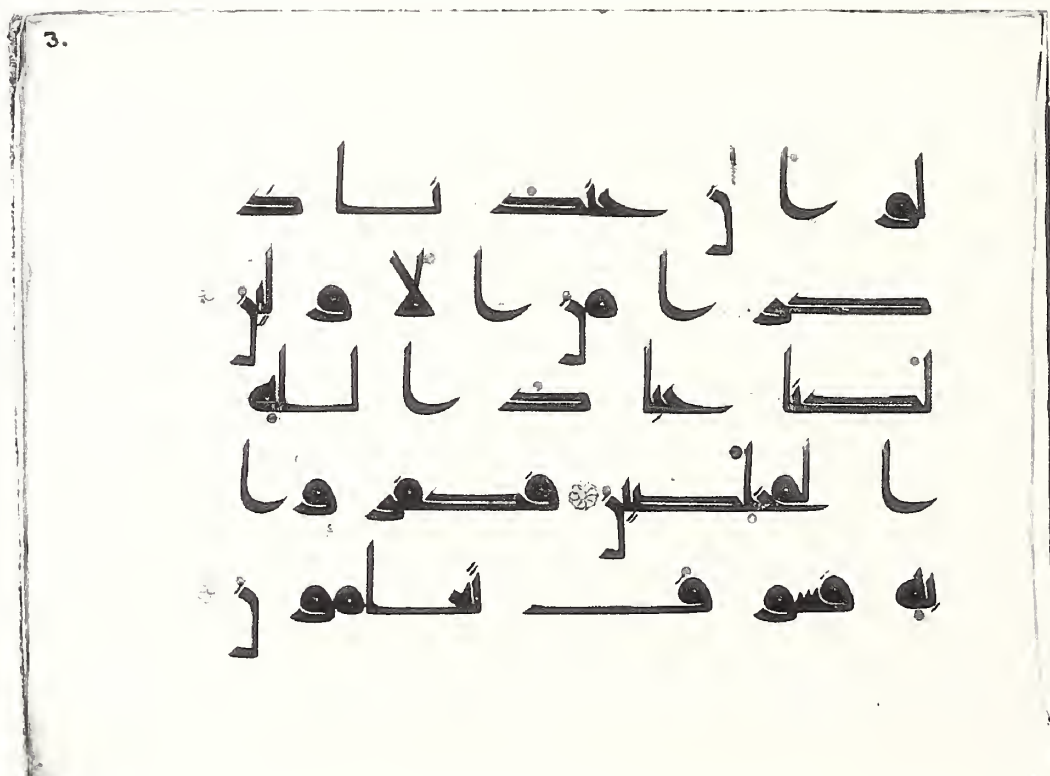 3.
لو أن عندنا ذ
كرا من الأولين
لكنا عباد الله
المخلصين فكفروا
به فسوف يعلمون